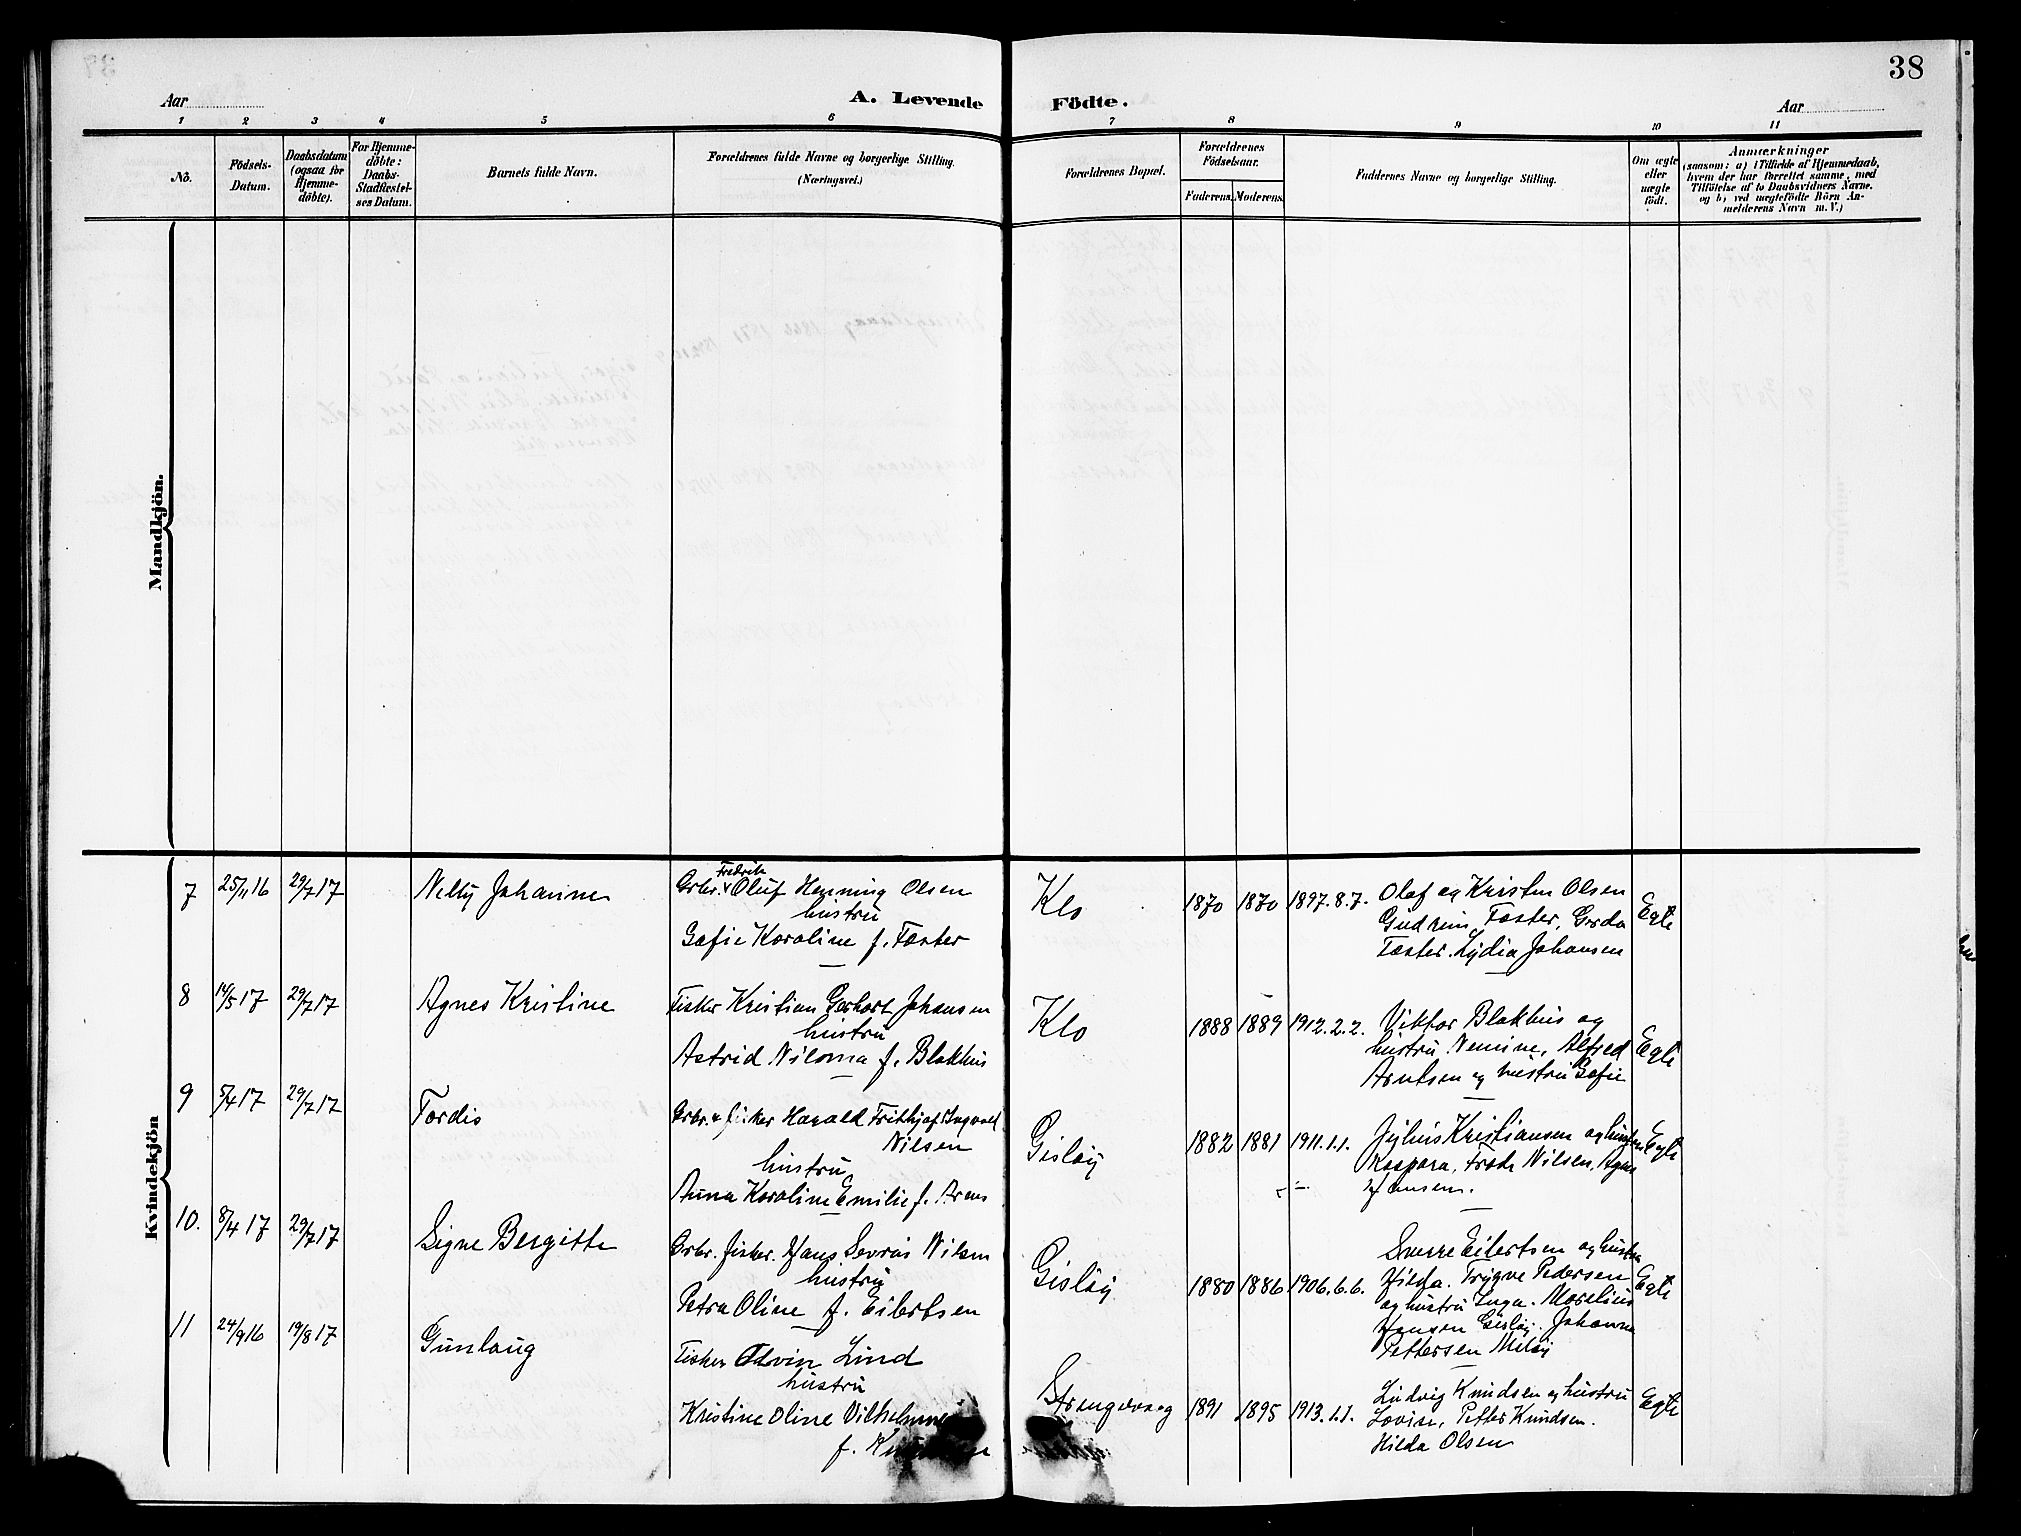 38
Aar
A. Levende Födte.
Aar
1 2 3 4 5 6 7 8 9 10 11
No.
Födsels-
Datum.
Daabsdatum
(ogsaa for
Hjemme-
döbte).
For Hjemme-
döbte:
Daabs-
Stadfæstel-
ses Datum.
Barnets fulde Navn.
Forældrenes fulde Navne og borgerlige Stilling.
(Næringsvei.)
Forældrenes Bopæl.
Forældrenes
Födselsaar.
Faderens. Moderens.
Faddernes Navne og borgerlige Stilling.
Om ægte
eller
uægte
födt.
Anmærkninger
(saasom: a) i Tilfælde af Hjemmedaab,
hvem der har forrettet samme, med
Tilföielse af to Daabsvidners Navne.
og b) ved uægtefödte Börn An-
melderens Navn m. V.)
Mandkjön.
Kvindekjön
7 25/11 16 29/7 17 Nelly Johanne
Fredrik
Grbr. Oluf Henning Olsen
hustru
Sofie Karoline f. Foster
Klo 1870 1870 1897.8.7.
Olaf og Kristen Olsen
Gudrun Foster, Gerda
Foster. Lydia Johansen
Egte
8 14/5 17 29/7 17 Agnes Kristine
Fisker Kristian Gerhart Johansen
hustru
Astrid Niloma f. Blokhus
Klo 1888 1889 1912.2.2.
Viktor Blokhus og
hustru Nemine, Alfred
Arntsen og hustru Sofie
Egte
9 5/4 17 29/7 17 Tordis
Grbr. & fisker Harald Frithjof Ingvald
Nilsen
hustru
Anna Karoline Emilie f. Arens
Gisløy 1882 1881 1911.1.1.
Julius Kristiansen og hustru
Kaspara, Frode Nilsen, Agnes
Hansen.
Egte
10. 8/4 17 29/7 17 Signe Bergitte
Grbr. fisker. Hans Sevrin Nilsen
hustru
Petra Oline f. Eilertsen
Gisløy 1880 1886 1906.6.6.
Sverre Eilertsen og hustru
Hilda. Trygve Pedersen
og hustru Inga. Marelius
Hansen Gisløy. Johanna
Pettersen Meløy
Egte
11 24/9 16 19/8 17 Gunlaug
Fisker Edvin Lind
hustru
Kristine Oline Vilhelmine
f.
Strengelvaag 1891 1895 1913.1.1.
Ludvig Knudsen og hustru
Lovise, Petter Knudsen.
Hilda Olsen
Egte